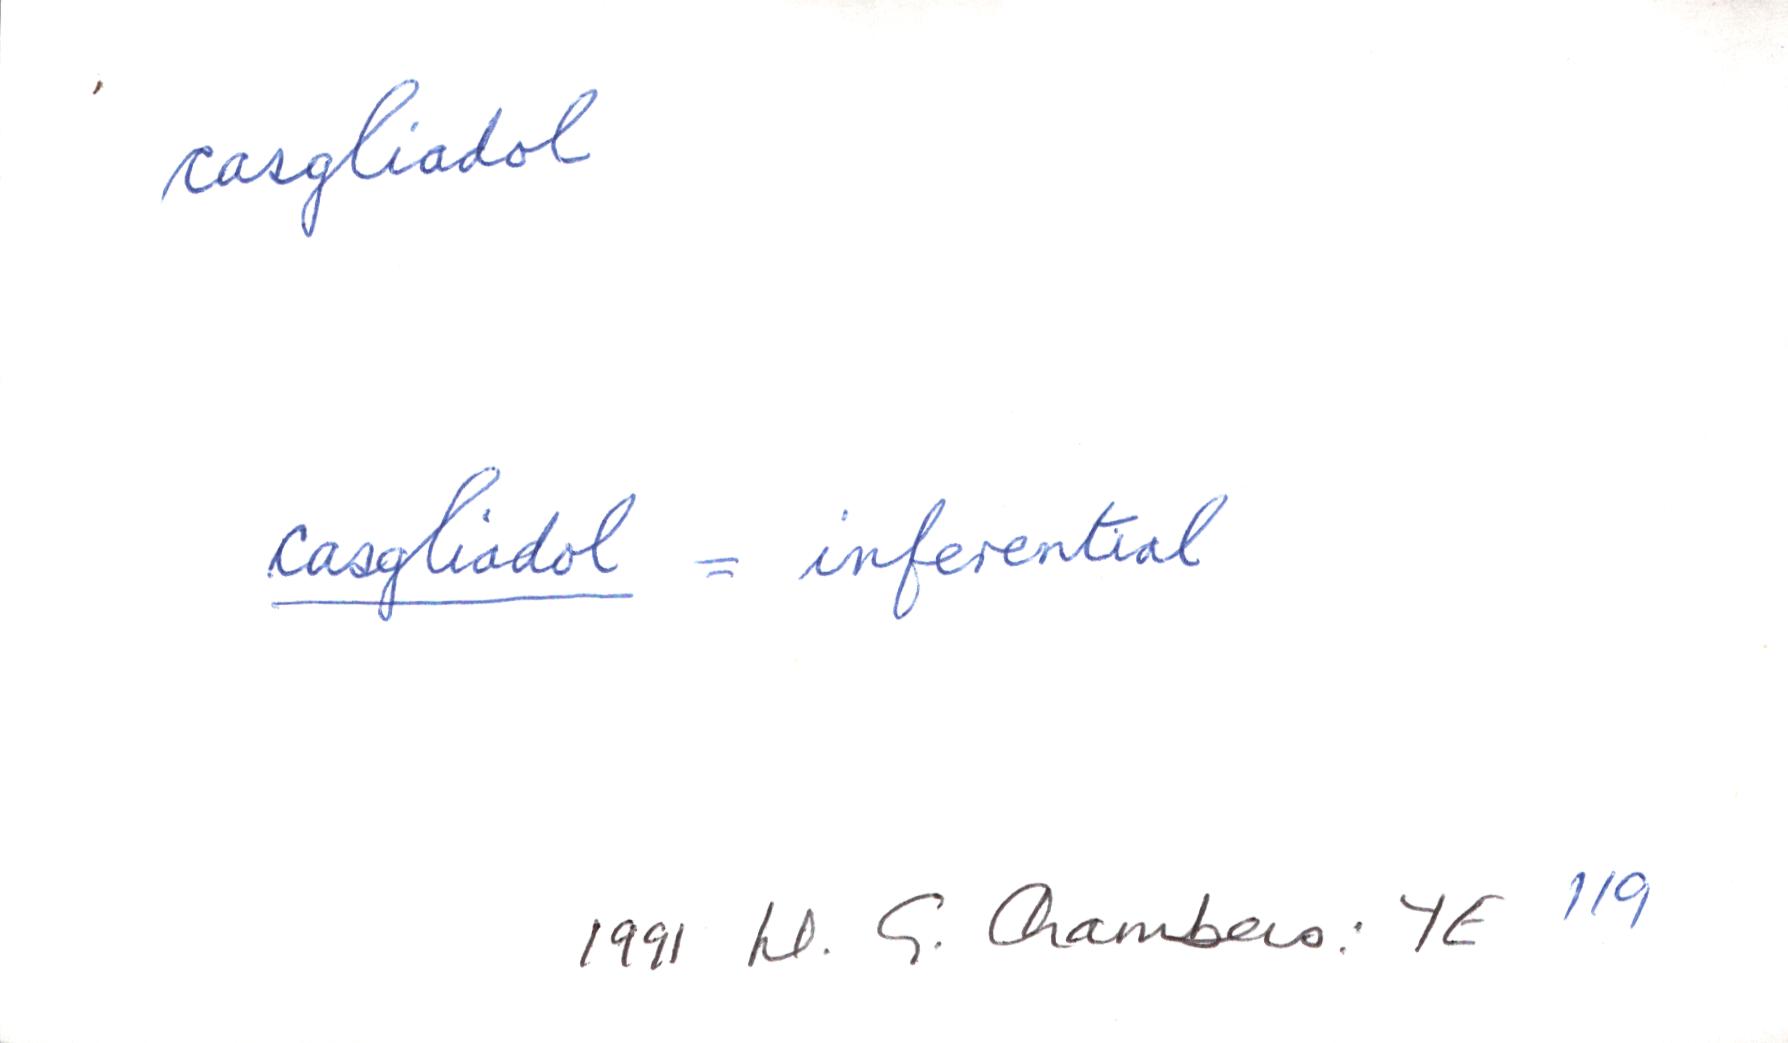 casgliadol
casgliadol = inferential
1991 W. G. Chambers: YE 119